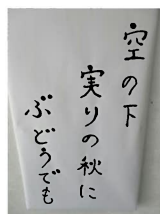 空の下
実りの秋に
ぶどうでも